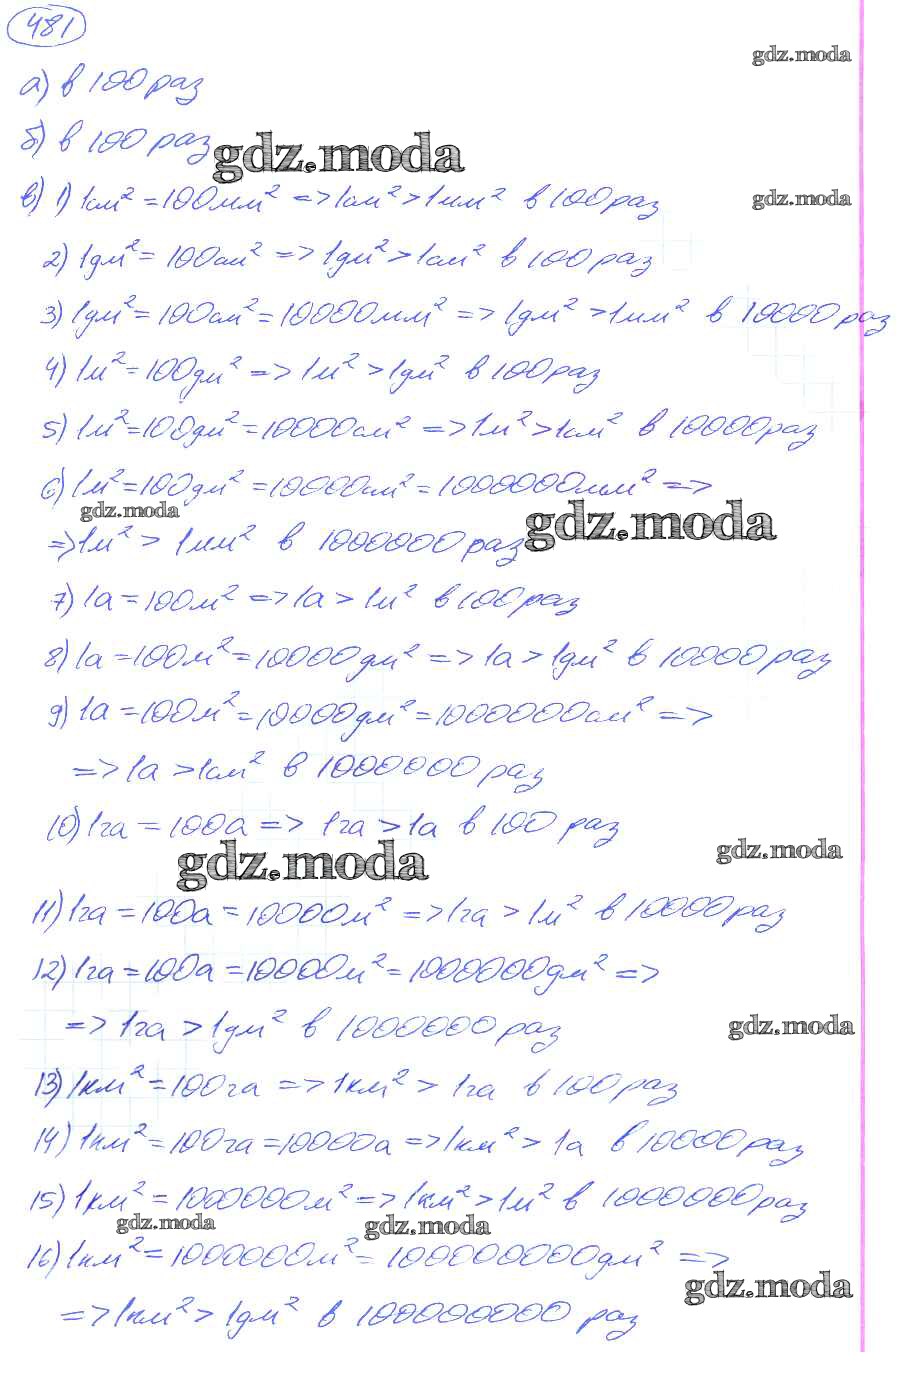 481
gdz.moda
а) в 100 раз
б) в 100 раз
gdz.moda
в) 1) 1см² = 100мм² => 1см² > 1мм² в 100 раз
gdz.moda
2) 1дм² = 100см² => 1дм² > 1см² в 100 раз
3) 1дм² = 100см² = 10000мм² => 1дм² > 1мм² в 10000 раз
4) 1м² = 100дм² => 1м² > 1дм² в 100 раз
5) 1м² = 100дм² = 10000см² => 1м² > 1см² в 10000 раз
6) 1м² = 100дм² = 10000см² = 1000000мм² =>
gdz.moda
gdz.moda
=> 1м² > 1мм² в 1000000 раз
7) 1а = 100м² => 1а > 1м² в 100 раз
8) 1а = 100м² = 10000дм² => 1а > 1дм² в 10000 раз
9) 1а = 100м² = 10000дм² = 1000000см² =>
=> 1а > 1см² в 1000000 раз
10) 1га = 100а => 1га > 1а в 100 раз
gdz.moda
gdz.moda
11) 1га = 100а = 10000м² => 1га > 1м² в 10000 раз
12) 1га = 100а = 10000м² = 1000000дм² =>
=> 1га > 1дм² в 1000000 раз
gdz.moda
13) 1км² = 100га => 1км² > 1га в 100 раз
14) 1км² = 100га = 10000а => 1км² > 1а в 10000 раз
15) 1км² = 1000000м² => 1км² > 1м² в 1000000 раз
gdz.moda
gdz.moda
16) 1км² = 1000000м² = 100000000дм² =>
gdz.moda
=> 1км² > 1дм² в 100000000 раз